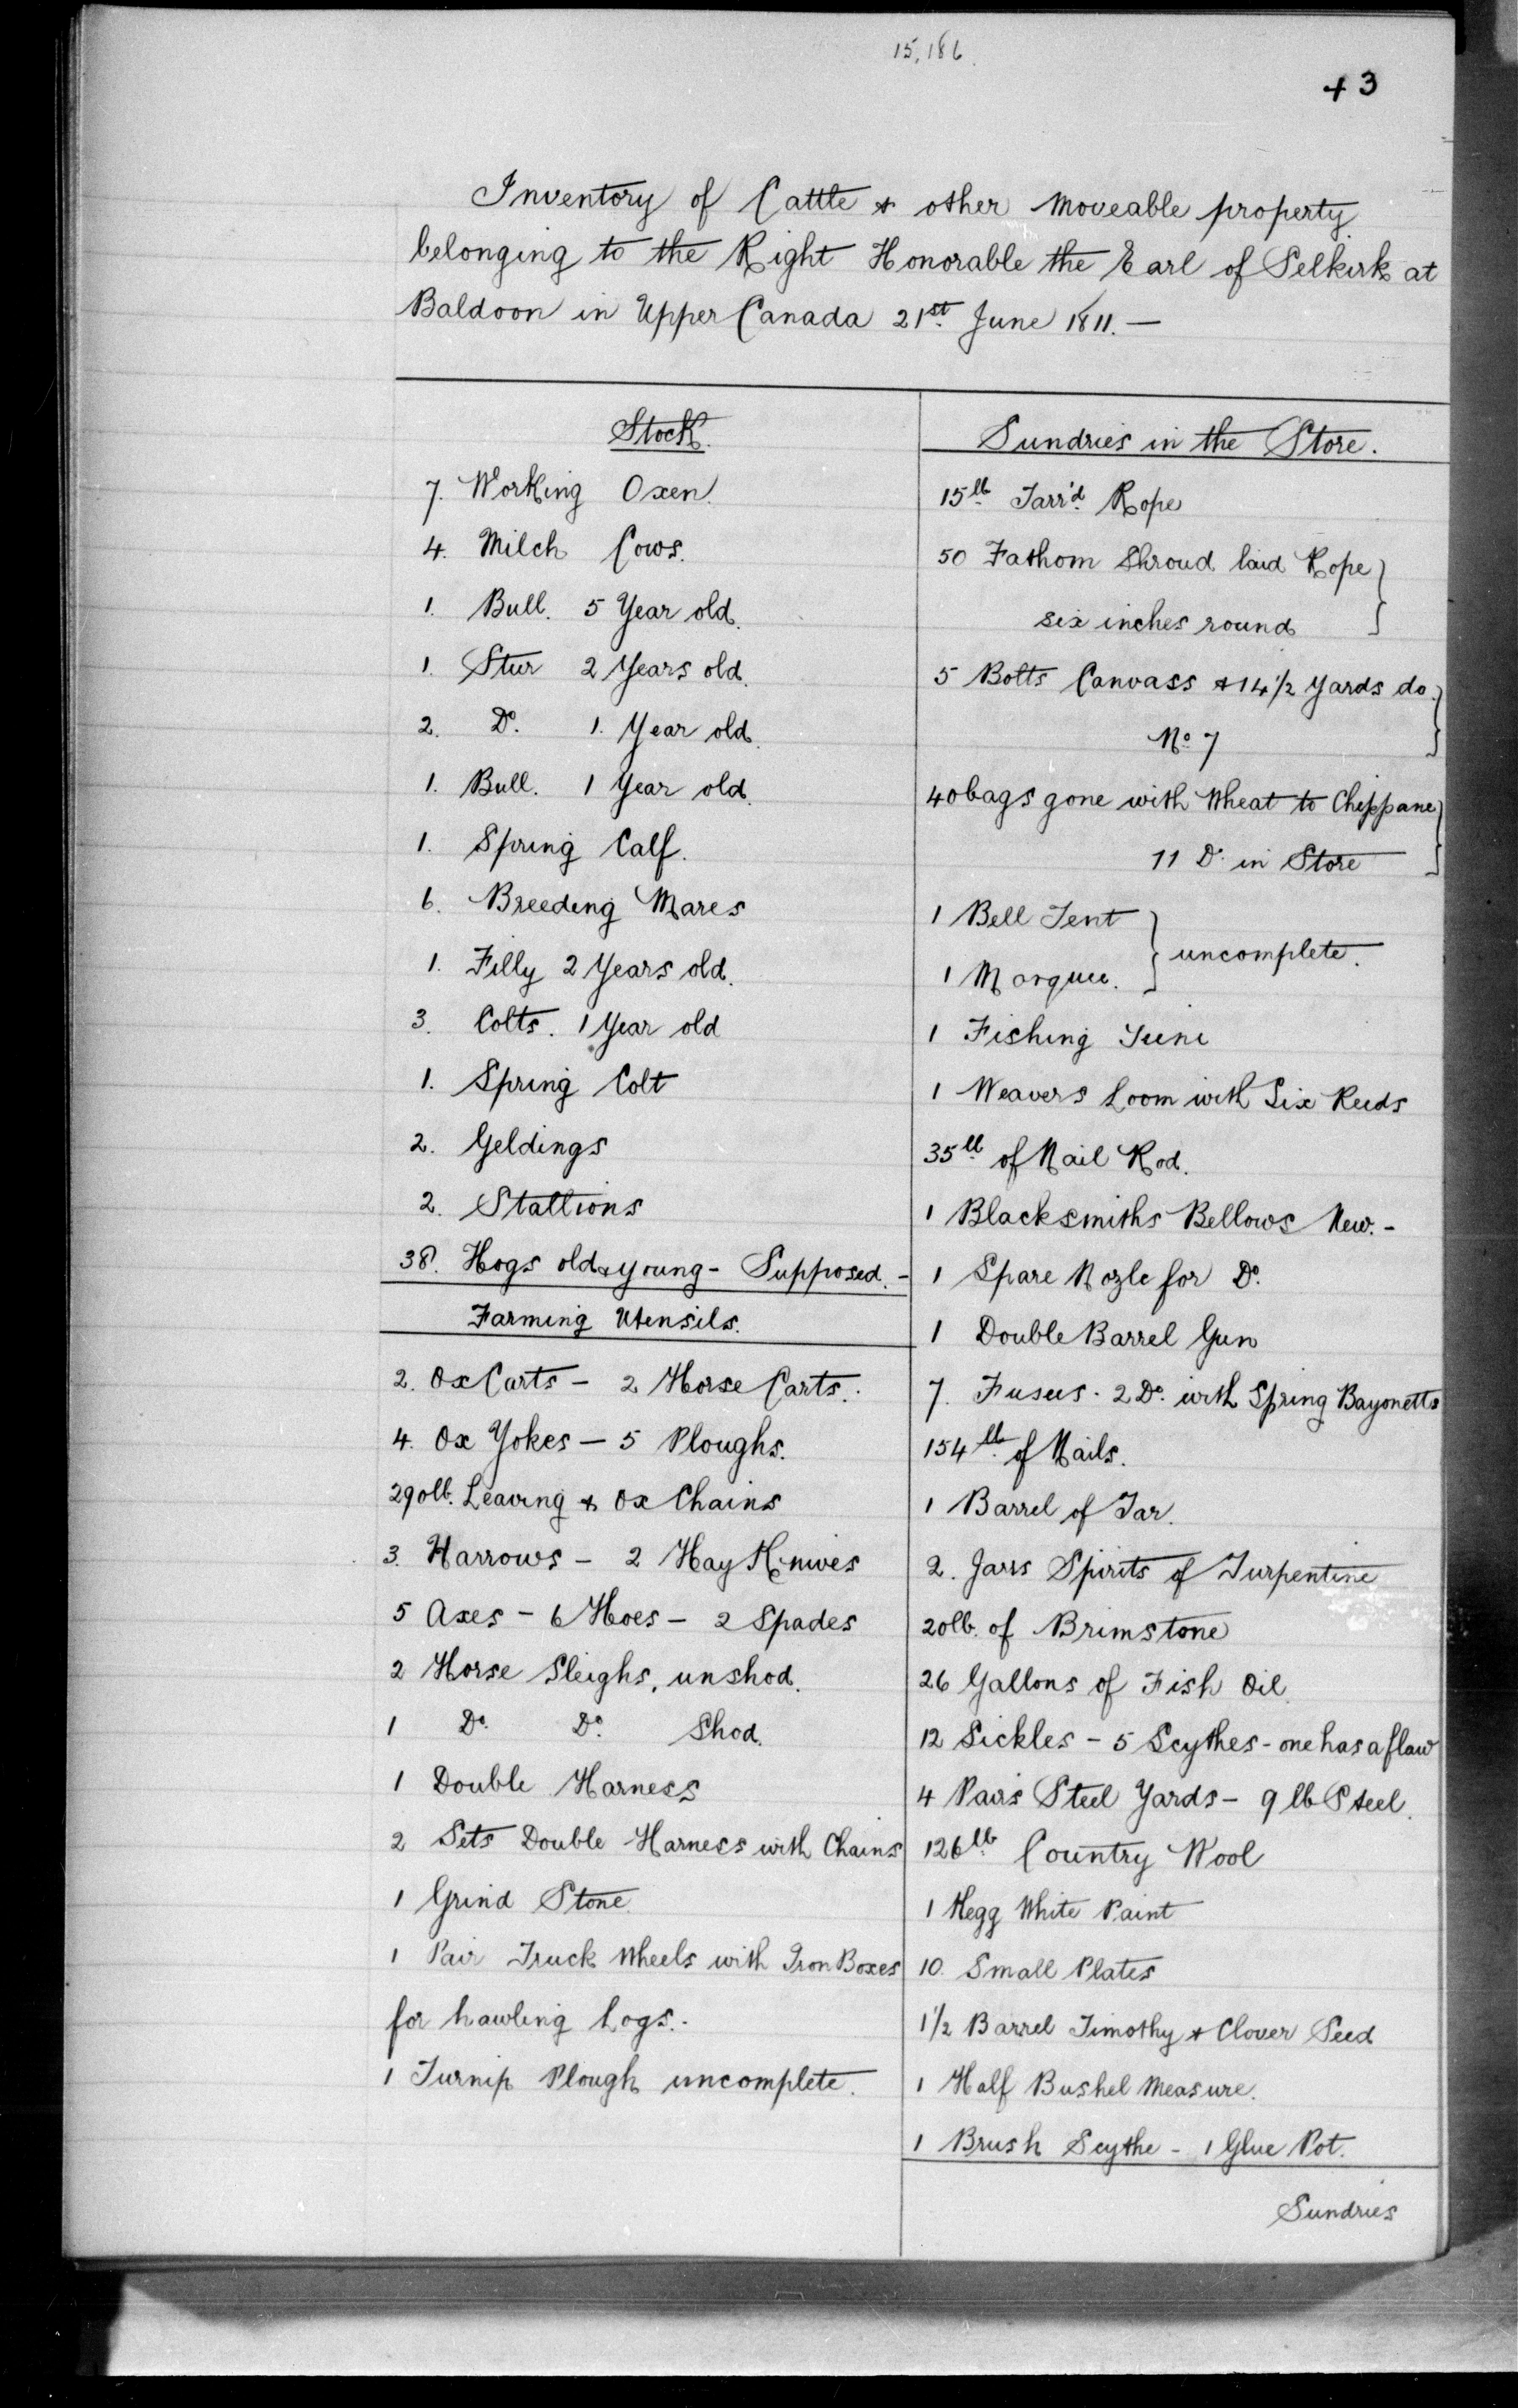 15,186.
43
Inventory of Cattle & other moveable property
belonging to the Right Honorable the Earl of Selkirk at
Baldoon in Upper Canada 21st June 1811. —
Stock.
7. Working Oxen.
4. Milch Cows.
1. Bull. 5 Year old.
1. Stur 2 Years old.
2. Do. 1. Year old.
1. Bull. 1 Year old.
1. Spring Calf.
6. Breeding Mares
1. Filly 2 Years old.
3. Colts. 1 Year old
1. Spring Colt
2. Geldings
2. Stallions
38. Hogs old & young - Supposed. -
Farming Utensils.
2. Ox Carts - 2 Horse Carts.
4. Ox Yokes - 5 Ploughs.
290lb. Leaving & Ox Chains
3. Harrows - 2 Hay Knives
5 Axes - 6 Hoes - 2 Spades
2 Horse Sleighs, unshod.
1 Do. Do. Shod.
1 Double Harness
2 Sets Double Harness with Chains
1 Grind Stone
1 Pair Truck Wheels with Iron Boxes
for hawling Logs.
1 Turnip Plough uncomplete.
Sundries in the Store.
15lb Tarr'd Rope
50 Fathom Shroud laid Rope
six inches round
5 Bolts Canvass & 14 1/2 yards do.
No. 7
40 bags gone with Wheat to Chippane
11 Do. in Store
1 Bell Tent
uncomplete.
1 Marquee.
1 Fishing Seine
1 Weavers Loom with Six Reeds
35lb of Nail Rod.
1 Blacksmiths Bellows New. -
1 Spare Nozle for Do.
1 Double Barrel Gun
7. Fusees - 2 Do. with Spring Bayonetts
154lb of Nails.
1 Barrel of Tar.
2. Jars Spirits of Turpentine
20lb. of Brimstone
26 Gallons of Fish Oil
12 Sickles - 5 Scythes - one has a flaw
4 Pairs Steel Yards - 9 lb Steel.
126lb Country Wool
1 Kegg White Paint
10. Small Plates
1 1/2 Barrel Timothy & Clover Seed
1 Half Bushel Measure.
1 Brush Scythe - 1 Glue Pot.
Sundries